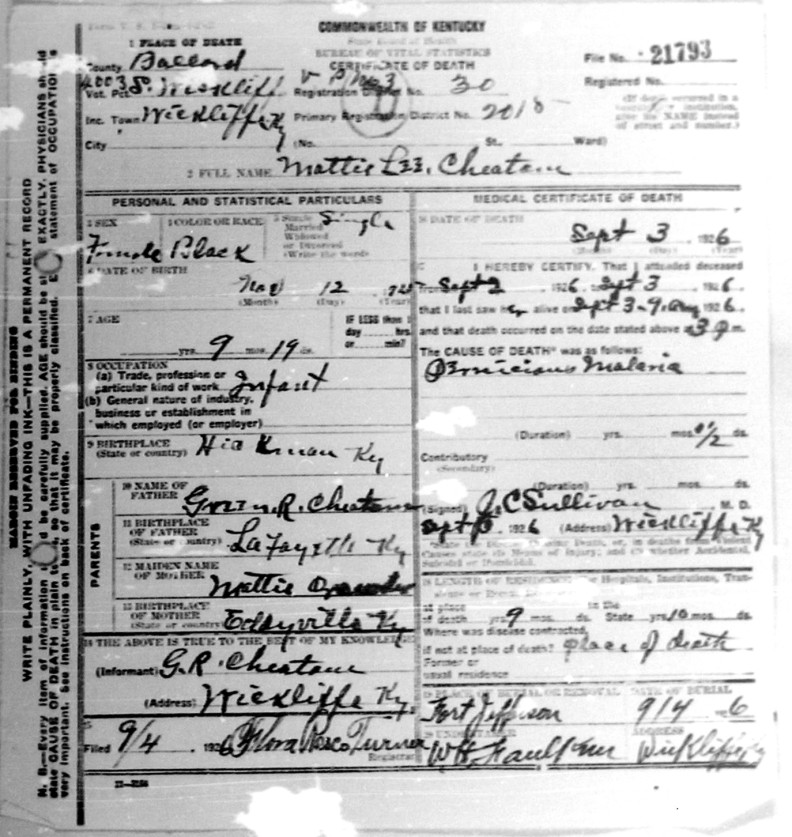 COMMONWEALTH OF KENTUCKY
State Board of Health
BUREAU OF VITAL STATISTICS
CERTIFICATE OF DEATH
File No. 21793
Registered No.
1 PLACE OF DEATH
County Ballard
Vot. Pct. S. Wickliff
Registration District No. 30
Inc. Town Wickliffe Ky
Primary Registration District No. 2018
City (No. St., Ward)
(If death occurred in a institution give its NAME instead of street and number.)
2 FULL NAME Mattie Lee Cheatam
PERSONAL AND STATISTICAL PARTICULARS
3 SEX
Female
4 COLOR OR RACE
Black
5 Single
Married
Widowed
or Divorced
(Write the word)
Single
6 DATE OF BIRTH
Nov 12
(Month) (Day) (Year)
7 AGE
yrs. 9 mos. 19 ds.
IF LESS than 1
day hrs.
or min?
8 OCCUPATION
(a) Trade, profession or
particular kind of work Infant
(b) General nature of industry,
business or establishment in
which employed (or employer)
9 BIRTHPLACE
(State or country) Hickman Ky
PARENTS
10 NAME OF
FATHER Green R. Cheatam
11 BIRTHPLACE
OF FATHER
(State or country) LaFayette Ky
12 MAIDEN NAME
OF MOTHER Mattie
13 BIRTHPLACE
OF MOTHER
(State or country) Eddyville Ky
14 THE ABOVE IS TRUE TO THE BEST OF MY KNOWLEDGE
(Informant) G.R. Cheatam
(Address) Wickliffe Ky.
15
Filed 9/4 1926 Flora Rosco Turner
Registrar
MEDICAL CERTIFICATE OF DEATH
16 DATE OF DEATH
Sept 3 1926
(Month) (Day) (Year)
I HEREBY CERTIFY, That I attended deceased
from Sept 2 1926 to Sept 3 1926.
that I last saw her alive on Sept 3 - 9 1926.
and that death occurred on the date stated above at 3 P m.
The CAUSE OF DEATH* was as follows:
Pernicious Malaria
(Duration) yrs. mos. 1/2 ds.
Contributory
(Secondary)
(Duration) yrs. mos. ds.
(Signed) J. C Sullivan M. D.
Sept 1926 (Address) Wickliffe Ky
18 LENGTH OF RESIDENCE (For Hospitals, Institutions, Transients or Recent
At place
of death yrs. 9 mos. ds.
In the
State yrs. 10 mos. ds.
Where was disease contracted,
if not at place of death? place of death
Former or
usual residence
19 PLACE OF BURIAL OR REMOVAL
Fort Jefferson
DATE OF BURIAL
9/4 1926
20 UNDERTAKER
WH Faulkner
ADDRESS
Wickliffe Ky
MARGIN RESERVED FOR BINDING
WRITE PLAINLY, WITH UNFADING INK—THIS IS A PERMANENT RECORD